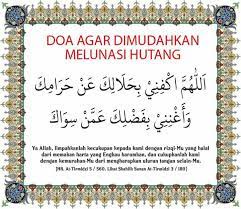 DOA AGAR DIMUDAHKAN
MELUNASI HUTANG
اَللّٰهُمَّ اكْفِنِيْ بِحَلَالِكَ عَنْ حَرَامِكَ
وَأَغْنِنِيْ بِفَضْلِكَ عَمَّنْ سِوَاكَ
Ya Allah, limpahkanlah kecukupan kepada kami dengan rizqi-Mu yang halal
dari memakan harta yang Engkau haramkan, dan cukupkanlah kami
dengan kemurahan-Mu dari mengharapkan uluran tangan selain-Mu.
[HR. At-Tirmidzi 5 / 560. Lihat Shahih Sunan At-Tirmidzi 3 / 180]